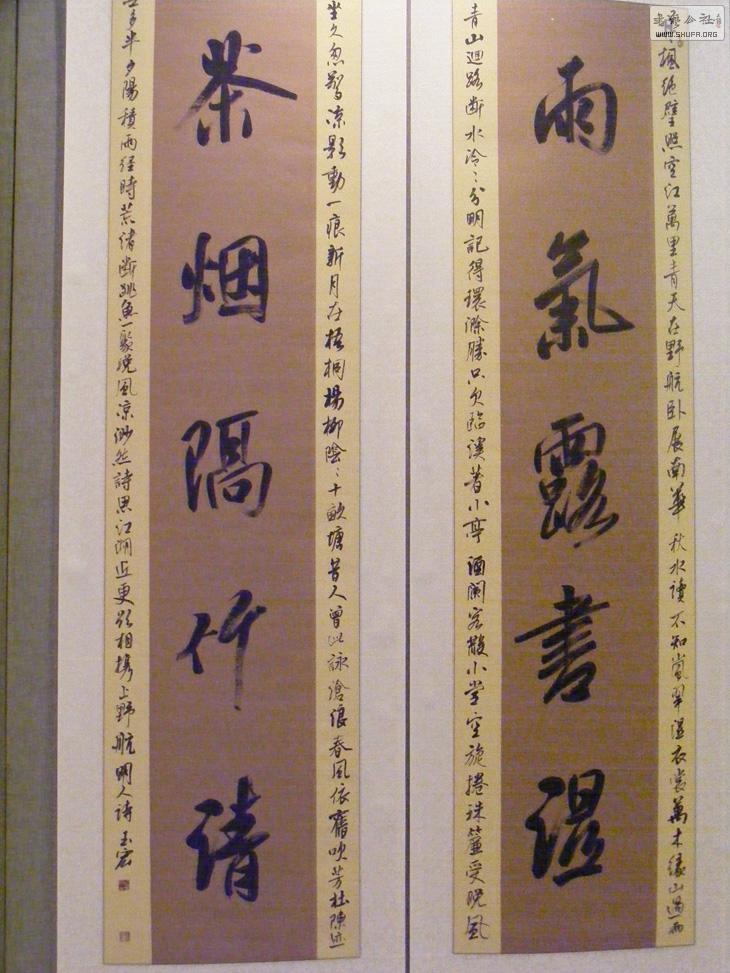 書藝公社
WWW.SHUFA.ORG
楓絕壁照空江萬里青天在野航臥展南華秋水讀不知嵐翠溼衣裳萬木緣山過雨
雨氣露書湿
青山迴路斷水泠〻分明記得環滁勝只欠臨溪著小亭酒闌客散小堂空旋捲珠簾受晚風
坐久忽驚凉影動一痕新月在梧桐楊柳陰〻十畝塘昔人曾此詠滄浪春風依舊吹芳杜陳迹
茶烟隔竹清
多半夕陽積雨經時荒渚斷跳魚一聚晚風凉渺然詩思江湖近更欲相携上野航明人詩玉宏